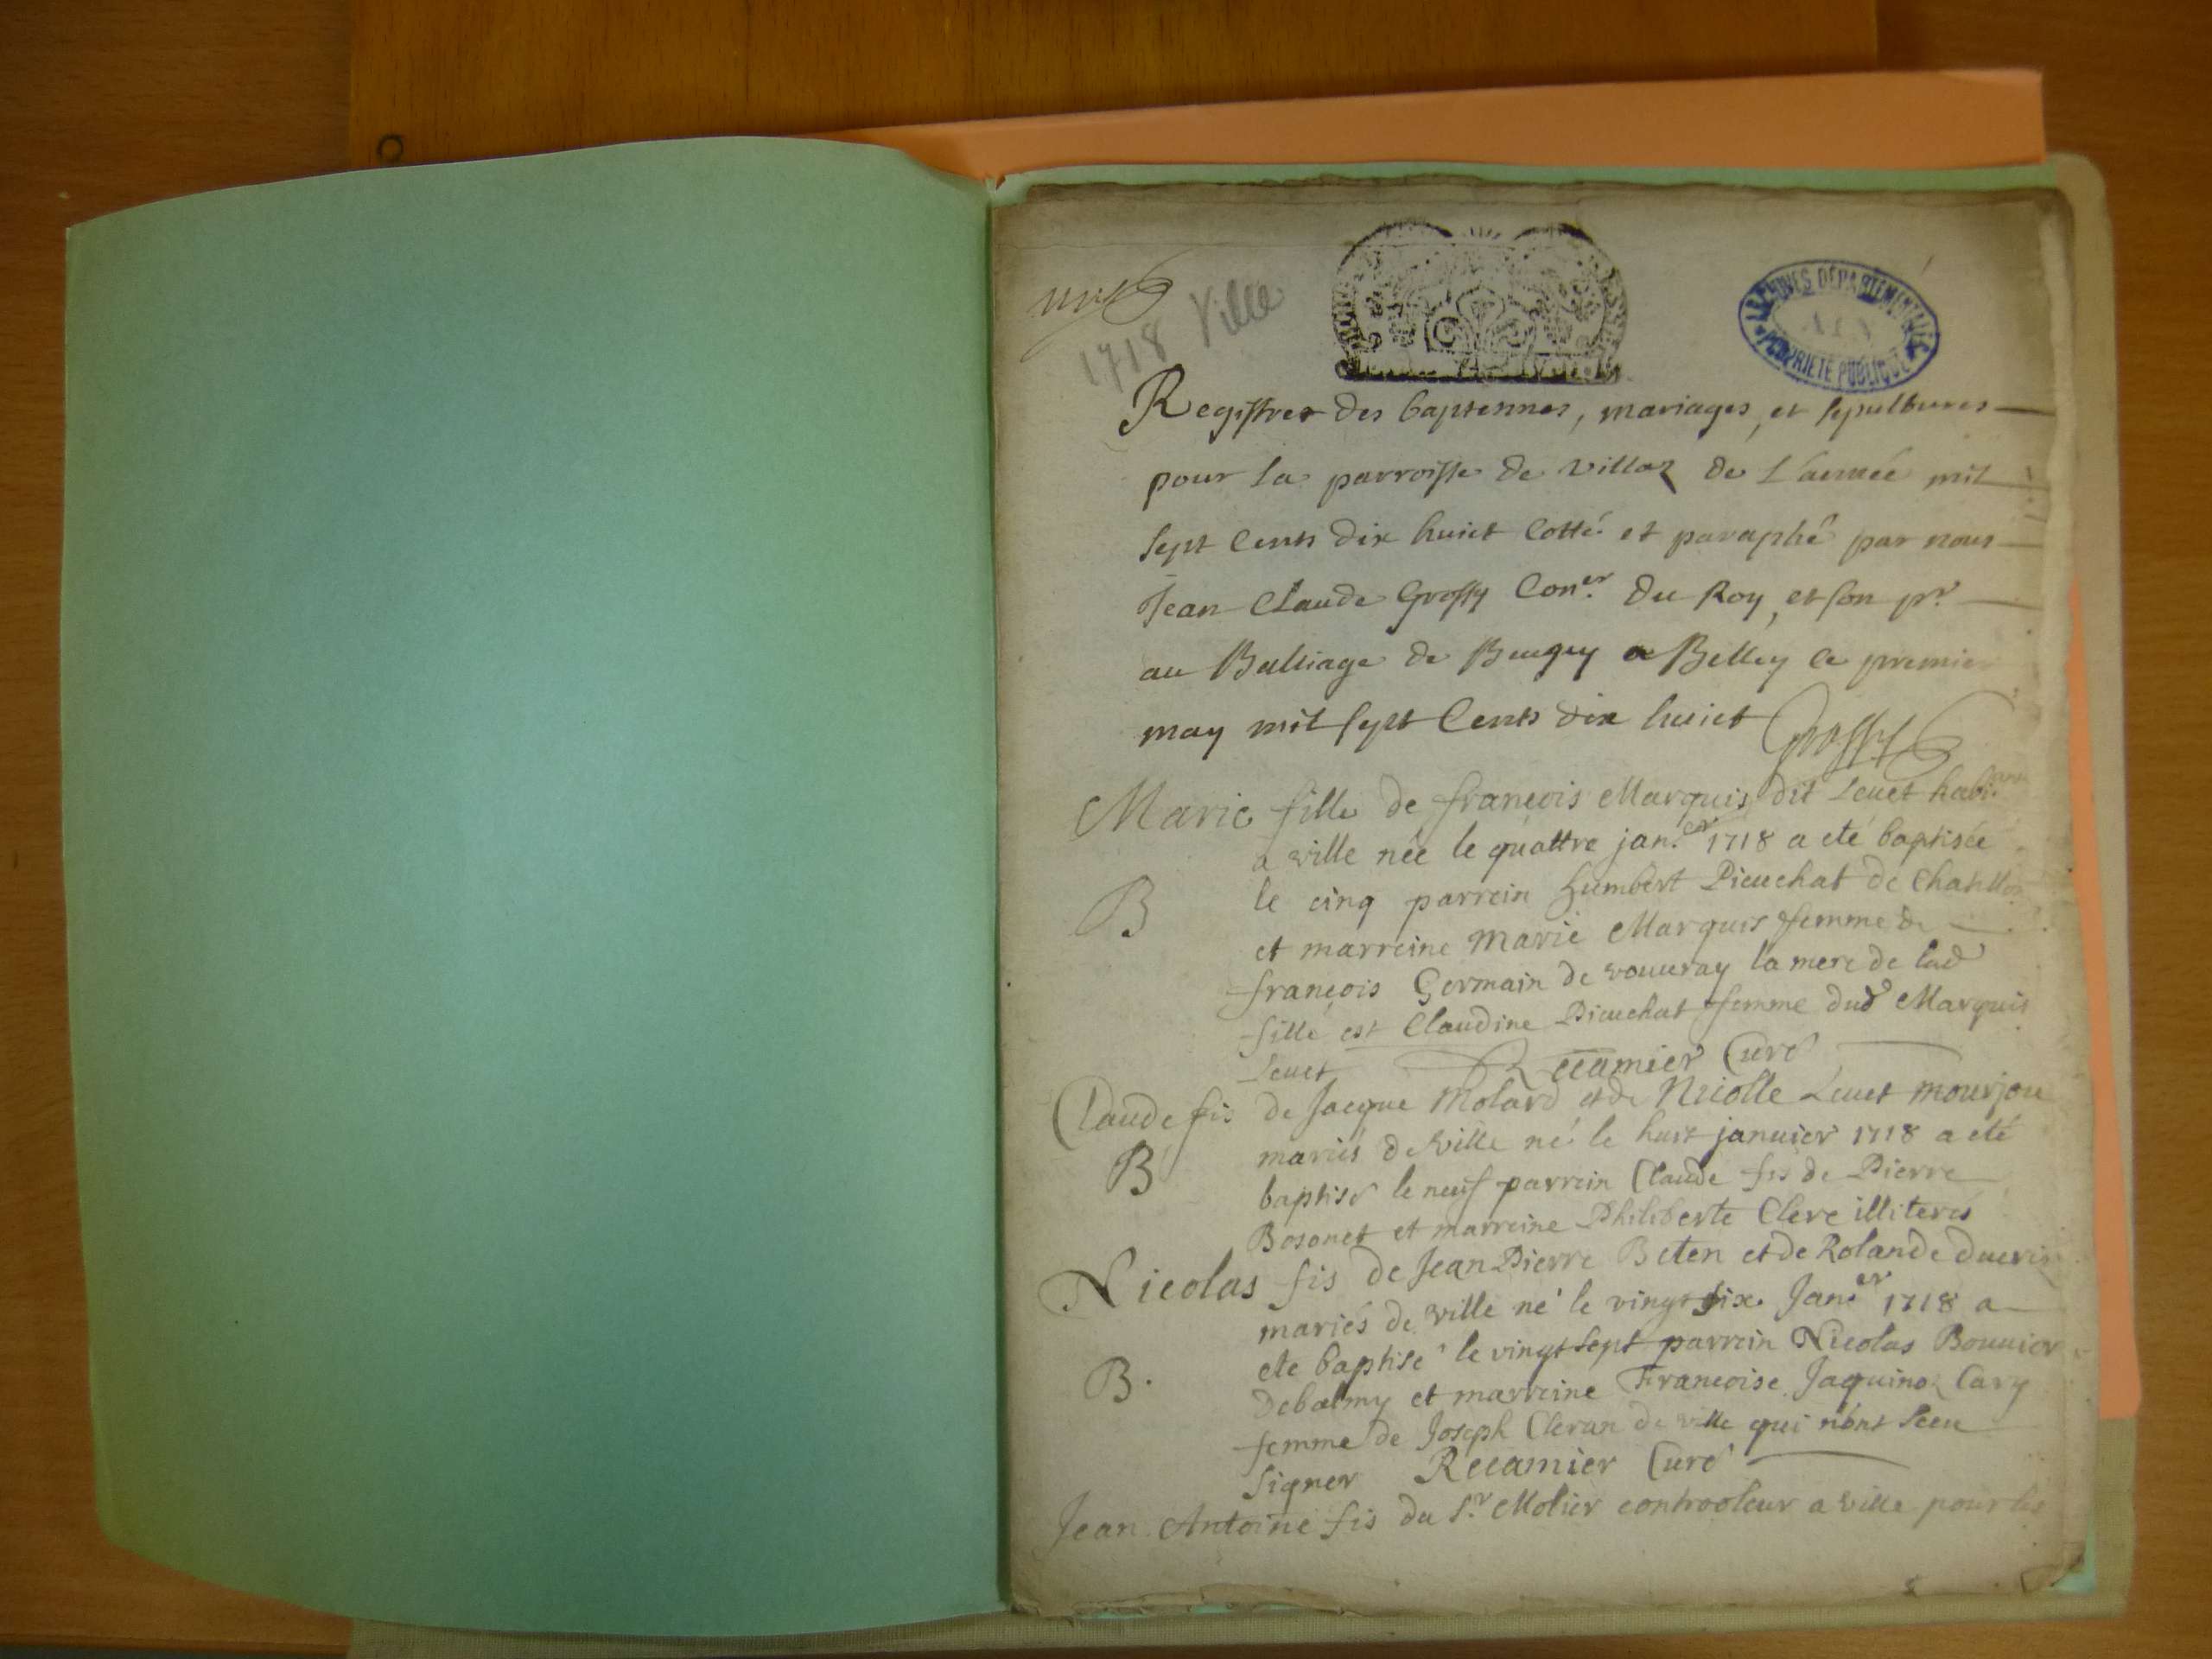 1718 Ville
ARCHIVES DÉPARTEMENTALES
AIN
PROPRIÉTÉ PUBLIQUE
Registres des baptesmes, mariages, et sepultures
pour la parroisse de villaz de L'année mil
sept Cents dix huict Cotté et paraphé par nous
Jean Claude Grossy Con.er du Roy, et son pr
au Balliage de Beugey a Belley ce premier
may mil sept Cents dix huict Grossy
Marie fille de francois Marquis dit Leuet habi.ant
a ville née le quattre jan.er 1718 a eté baptisée
B
le cinq parrein humbert Picuchat de Chatillon
et marreine Marie Marquis femme de
françois Germain de vouuray la mere de lad
fille est Claudine Picuchat femme dud Marquis
Leuet Recamier Curé
Claude fis de Jacque Molard et de Nicolle Leuet mourjou
B
mariés de ville né le huit januier 1718 a eté
baptisé le neuf parrein Claude fis de Pierre
Bosonet et marreine Philiberte Clerc illiterés
Nicolas fis de Jean Pierre Beten et de Rolande
mariés de ville né le vingt six Jan.er 1718 a
B.
ete baptisé le vingt sept parrein Nicolas Bouuier
Debalmy et marreine Francoise Jaquinot Cary
femme de Joseph Cleran de ville qui n'ont sceu
signer Recamier Curé
Jean Antoine fis du S.r Molier controoleur a ville pour les